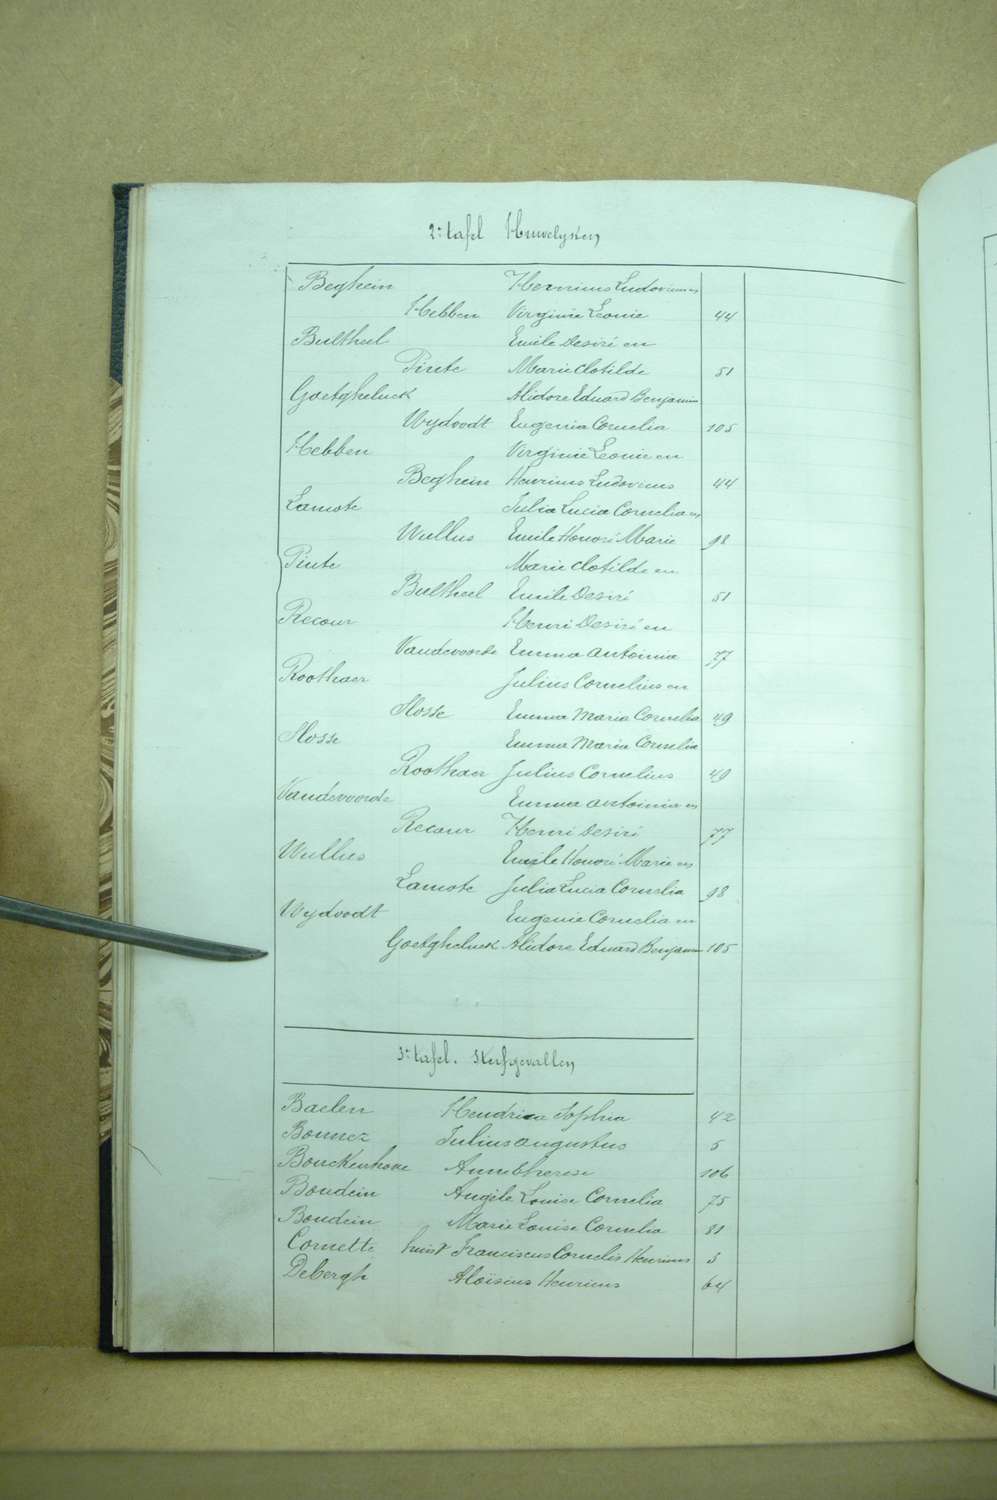 2e tafel Huwelyken
Beghein Henricus Ludovicus en
Hebben Virginie Leonie 44
Bultheel Emile Desiré en
Pinte Marie Clotilde 51
Goetgheluck Alidore Eduard Benjamin
Wydoodt Eugenia Cornelia 105
Hebben Virginie Leonie en
Beghein Henricus Ludovicus 44
Lamote Julia Lucia Cornelia en
Wullus Emile Honoré Marie 98
Pinte Marie Clotilde en
Bultheel Emile Desiré 51
Recour Henri Desiré en
Vandevoorde Emma Antoinia 77
Roothaer Julius Cornelius en
Slosse Emma Maria Cornelia 49
Slosse Emma Maria Cornelia
Roothaer Julius Cornelius 49
Vandevoorde Emma Antoinia en
Recour Henri Desiré 77
Wullus Emile Honoré Marie en
Lamote Julia Lucia Cornelia 98
Wydoodt Eugenie Cornelia en
Goetgheluck Alidore Eduard Benjamin 105
3e tafel. Sterfgevallen
Baelen Hendrica Sophia 42
Bonnez Julius Augustus 5
Bouckenhove Anne Therese 106
Boudein Angile Louise Cornelia 75
Boudein Marie Louise Cornelia 81
Cornette Franciscus Cornelis Henricus 3
Debergh Aloïsius Henricus 64